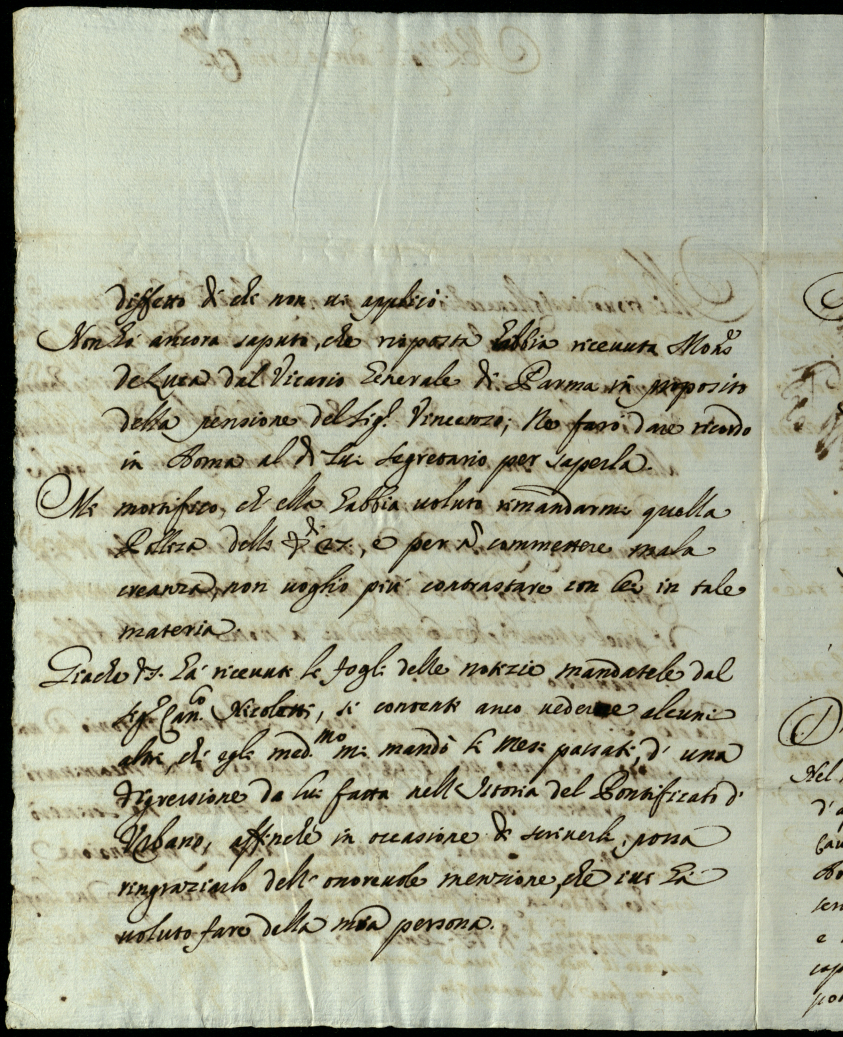 diffetto di chi non vi applicò.
Non hò ancora saputo, che risposta habbia ricevuta Mons.r
de Luca dal Vicario Generale di Parma in proposito
della pensione del Sig.r Vincenzo; Ne farò dare ricordo
in Roma al di lui segretario per saperla.
Mi mortifico, ch'ella habbia voluto rimandarmi quella
Polizza delli 27, e per nõ commettere mala
creanza, non voglio più contrastare con lei in tale
materia.
Giache V.S. hà ricevuti li fogli delle notizie mandatele dal
Sig.r Can.co Nicoletti, si contenti anco vederne alcuni
altri, ch'egli med.mo mi mandò li mesi passati, d'una
digressione da lui fatta nell'Istoria del Pontificato d'
Urbano, affinche in occasione di scriverli, possa
ringraziarlo dell'onorevole menzione, che ivi hà
voluto fare della mia persona.
D
Nel
d'a
e